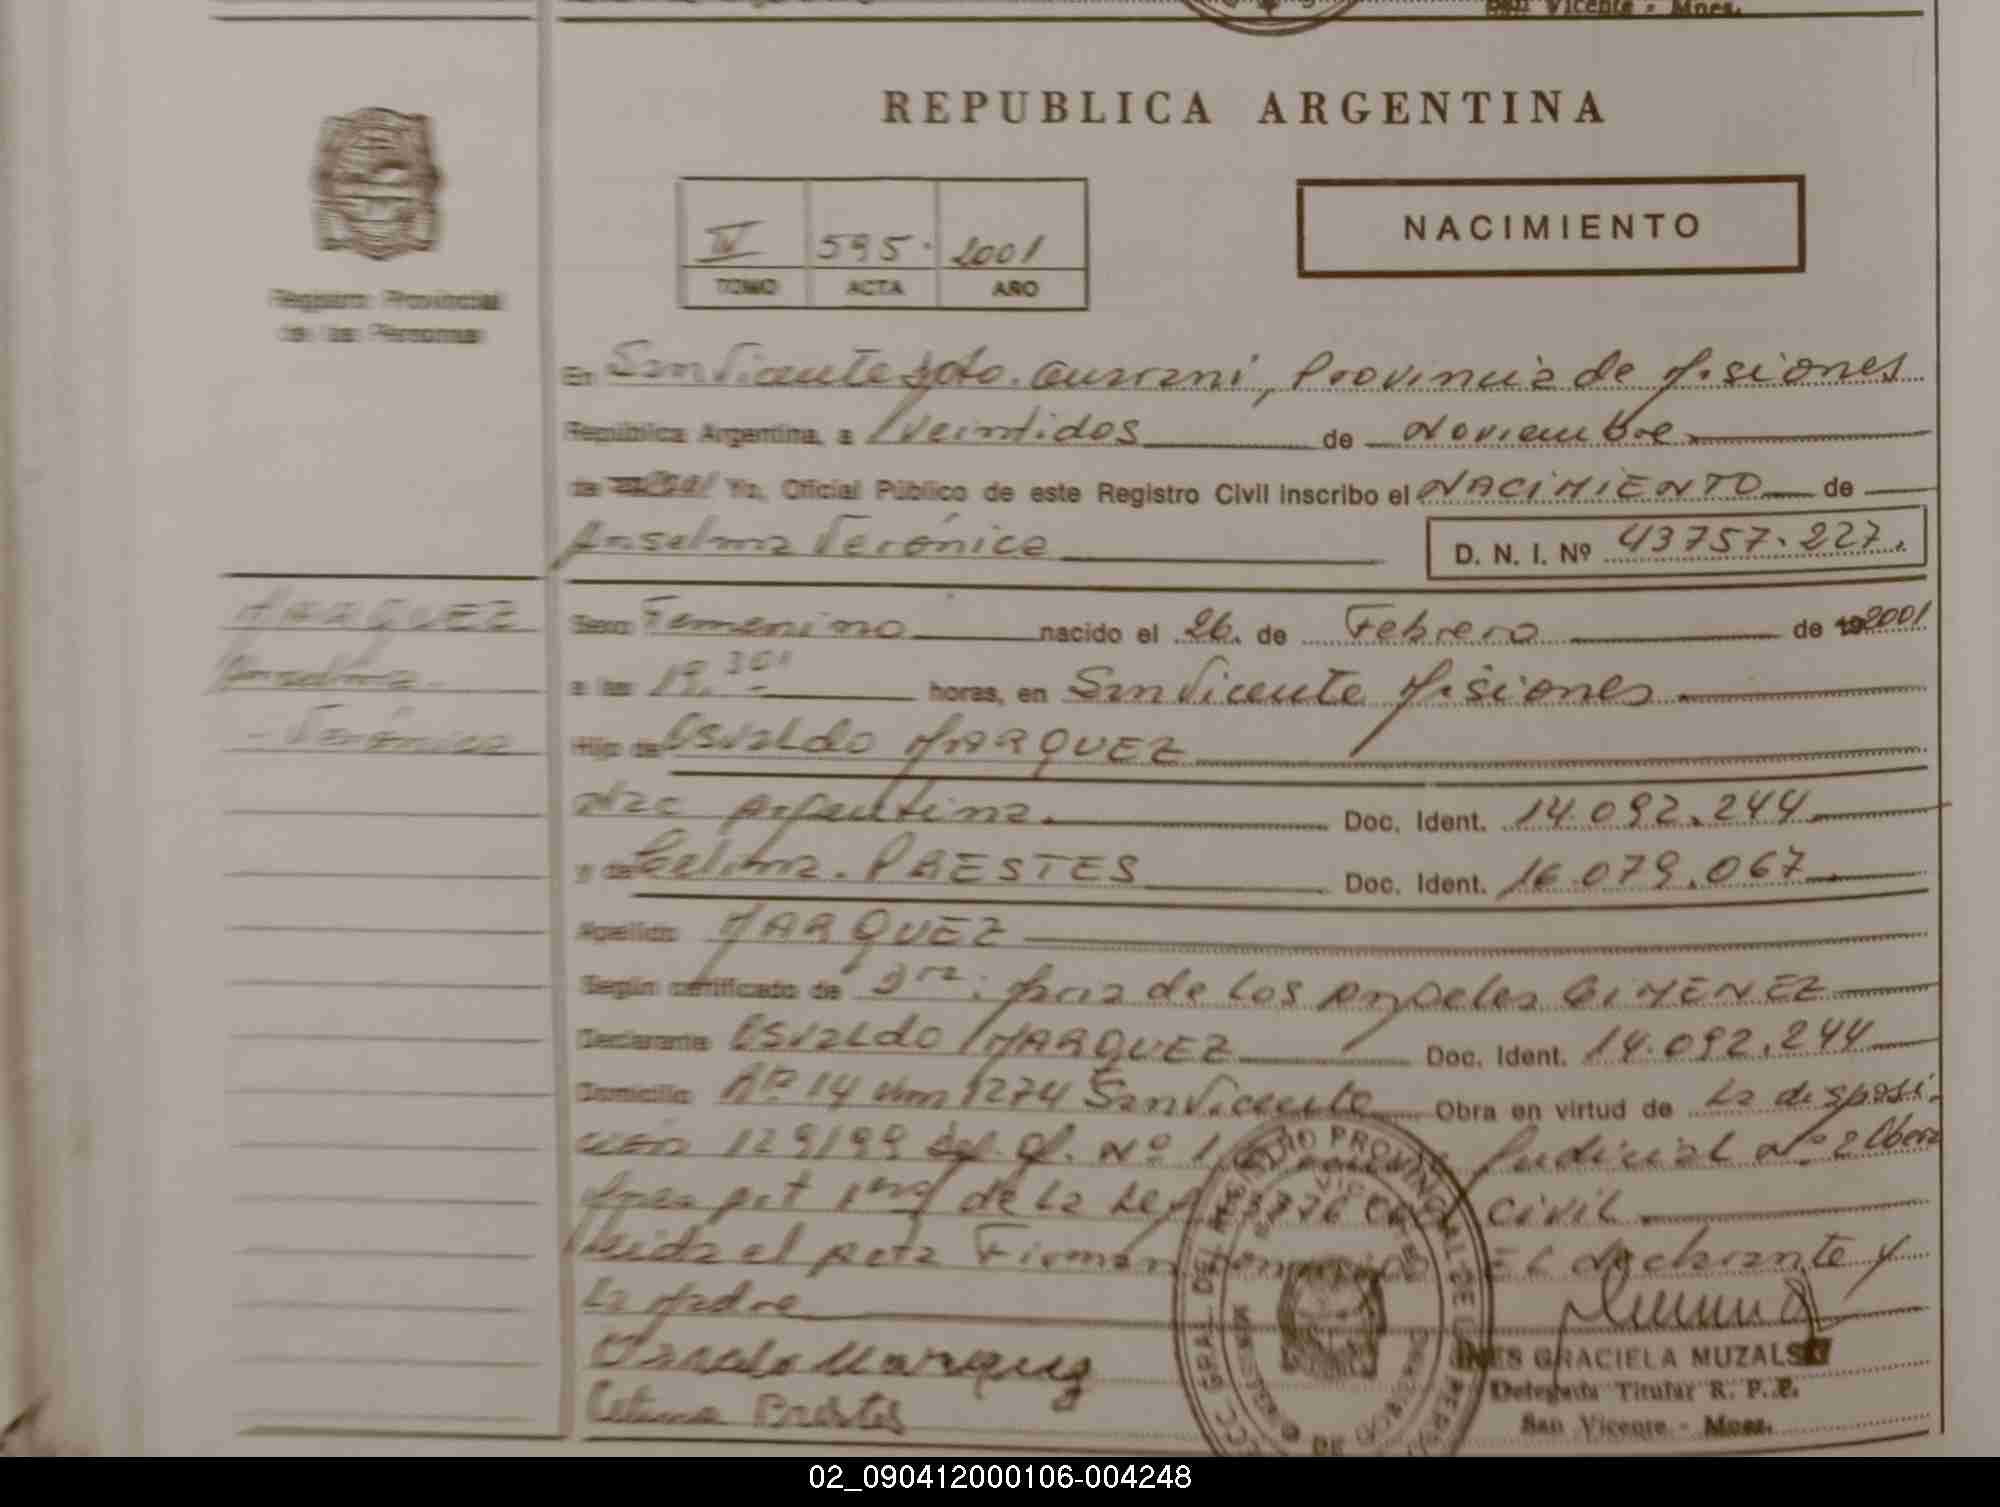 San Vicente - Mnes.
REPUBLICA ARGENTINA
NACIMIENTO
IV 595. 2001
TOMO ACTA AÑO
Registro Provincial
de las Personas
En San Vicente Dpto. Guarani, Provincia de Misiones
República Argentina, a Veintidos de Noviembre
de 2001 Yo, Oficial Público de este Registro Civil inscribo el NACIMIENTO de
Anselma Verónica D. N. I. Nº 43757.227.
MARQUEZ
Anselma
- Verónica
Sexo Femenino nacido el 26. de Febrero de 19 2001
a las 19.30 horas, en San Vicente Misiones
Hijo de Osvaldo MARQUEZ
Nac Argentina. Doc. Ident. 14.092.244
y de Celima. PRESTES Doc. Ident. 16.079.067
Apellido MARQUEZ
Según certificado de Dra. Maria de Los Angeles GIMENEZ
Declarante Osvaldo MARQUEZ Doc. Ident. 14.092.244
Domicilio Rta 14 Km 1274 San Vicente Obra en virtud de La disposi-
ción 129/99 Nº 1 Judicial Nº 2 Obera
de La Ley Civil
Leida el Acta Firman El declarante y
La Madre
Osvaldo Marquez
Celima Prestes
INES GRACIELA MUZALSKI
Delegada Titular R. P. P.
San Vicente - Mnes.
02_090412000106-004248